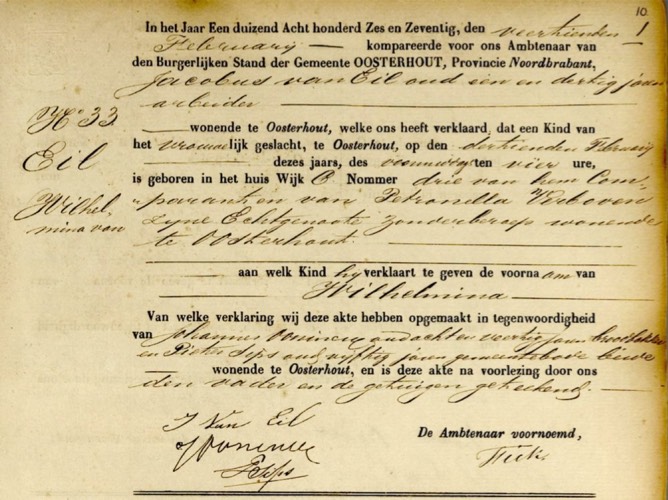 10.
In het Jaar Een duizend Acht honderd Zes en Zeventig, den veertienden
February — kompareerde voor ons Ambtenaar van
den Burgerlijken Stand der Gemeente OOSTERHOUT, Provincie Noordbrabant,
Jacobus van Eil oud een en dertig jaren
arbeider
No 33.
Eil
Wilhel-
mina van
wonende te Oosterhout, welke ons heeft verklaard, dat een Kind van
het vrouwelijk geslacht, te Oosterhout, op den dertienden February
dezes jaars, des voormiddag ten vier ure,
is geboren in het huis Wijk C. Nommer drie van hem Com-
parant en van Petronella Verboven
zyne Echtgenoote zonder beroep wonende
te Oosterhout.
aan welk Kind hy verklaart te geven de voornaam van
Wilhelmina
Van welke verklaring wij deze akte hebben opgemaakt in tegenwoordigheid
van Johannes oud acht en veertig jaren
en Pieter Sips oud vyftig jaren gemeentebode beide
wonende te Oosterhout, en is deze akte na voorlezing door ons
den vader en de getuigen geteekend.
J Van Eil
P Sips
De Ambtenaar voornoemd,